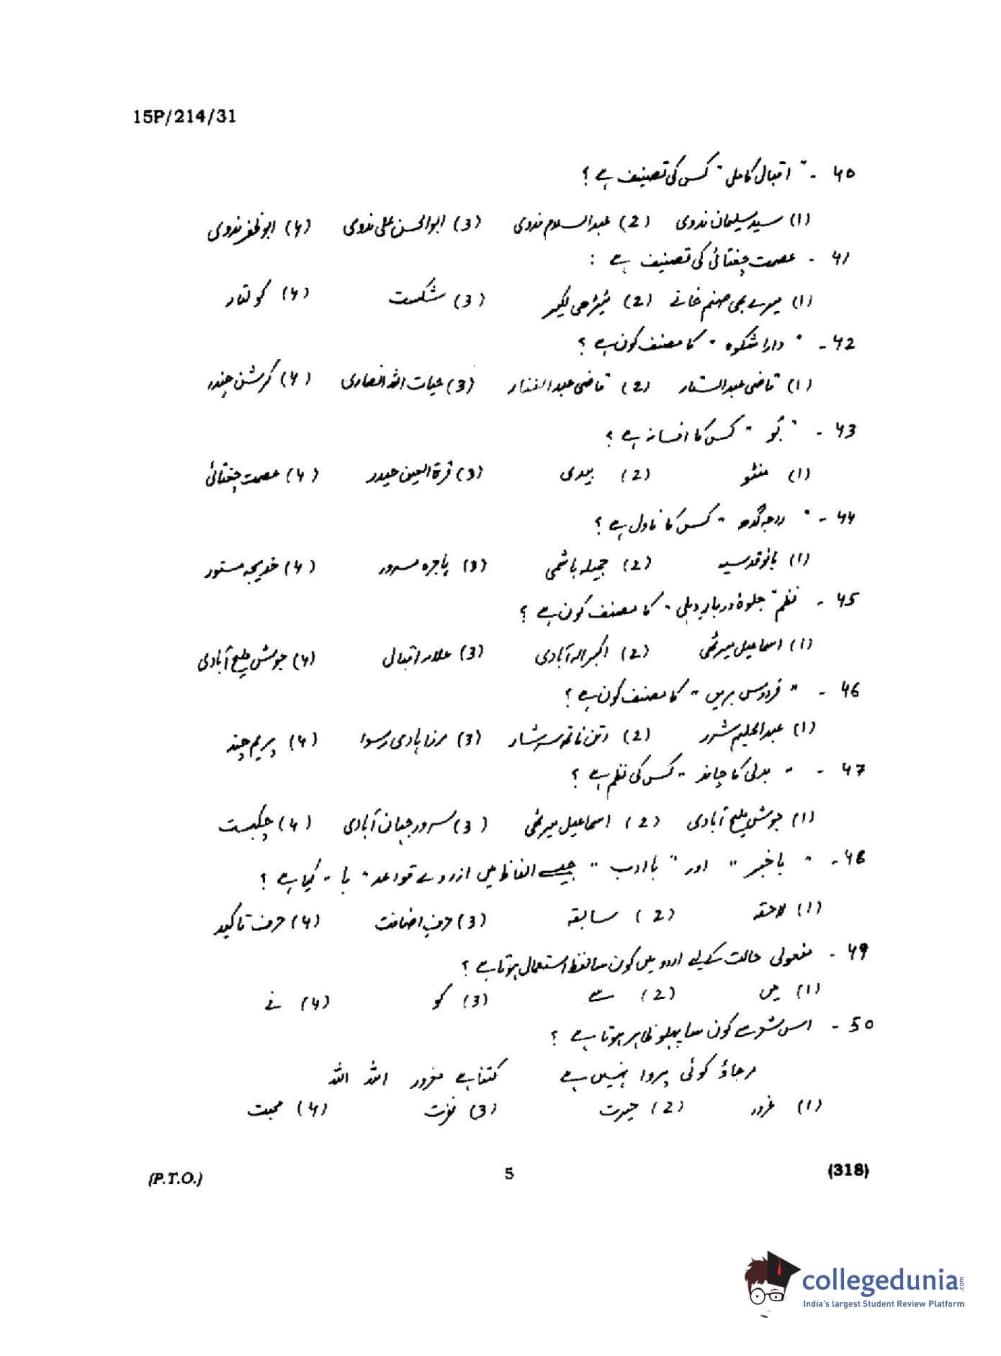 15P/214/31
40 - "اقبال کامل" کس کی تصنیف ہے ؟
(1) سید سلیمان ندوی (2) عبدالسلام ندوی (3) ابوالحسن علی ندوی (4) ابوظفر ندوی
41 - عصمت چغتائی کی تصنیف ہے :
(1) میرے بھی صنم خانے (2) ٹیڑھی لکیر (3) شکست (4) کولتار
42 - "داراشکوہ" کا مصنف کون ہے ؟
(1) قاضی عبدالستار (2) قاضی عبدالغفار (3) حیات اللہ انصاری (4) کرشن چندر
43 - "بُو" کس کا افسانہ ہے ؟
(1) منٹو (2) بیدی (3) قرۃ العین حیدر (4) عصمت چغتائی
44 - "راجہ گدھ" کس کا ناول ہے ؟
(1) بانو قدسیہ (2) جمیلہ ہاشمی (3) ہاجرہ مسرور (4) خدیجہ مستور
45 - نظم "جلوۂ دربار دہلی" کا مصنف کون ہے ؟
(1) اسماعیل میرٹھی (2) اکبر الہ آبادی (3) علامہ اقبال (4) جوش ملیح آبادی
46 - "فردوس بریں" کا مصنف کون ہے ؟
(1) عبدالحلیم شرر (2) رتن ناتھ سرشار (3) مرزا ہادی رسوا (4) پریم چند
47 - "بدلی کا چاند" کس کی نظم ہے ؟
(1) جوش ملیح آبادی (2) اسماعیل میرٹھی (3) سرور جہان آبادی (4) چکبست
48 - "باخبر" اور "باادب" جیسے الفاظ میں ازروے قواعد "با" کیا ہے ؟
(1) لاحقہ (2) سابقہ (3) حرف اضافت (4) حرف تاکید
49 - مفعولی حالت کے لیے اردو میں کون سا لفظ استعمال ہوتا ہے ؟
(1) میں (2) سے (3) کو (4) نے
50 - اس شعر سے کون سا پہلو ظاہر ہوتا ہے ؟
مرجاؤ کوئی پروا نہیں ہے کتنا ہے مغرور اللہ اللہ
(1) غرور (2) حیرت (3) نفرت (4) محبت
(P.T.O.) 5 (318)
collegedunia.com
India's largest Student Review Platform